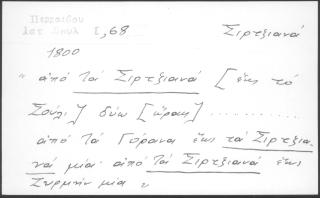 Περραιβου
Ιστ Σουλ I,68
Σιρτζιανά
1800
"ἀπό τά Σιρτζιανά [ἕως τό
Σούλι] δύω [ὥραις] ........
ἀπό τά Γόρανα ἕως τά Σιρτζια-
νά μία· ἀπό τά Σιρτζιανά ἕως
Ζερμήν μία "